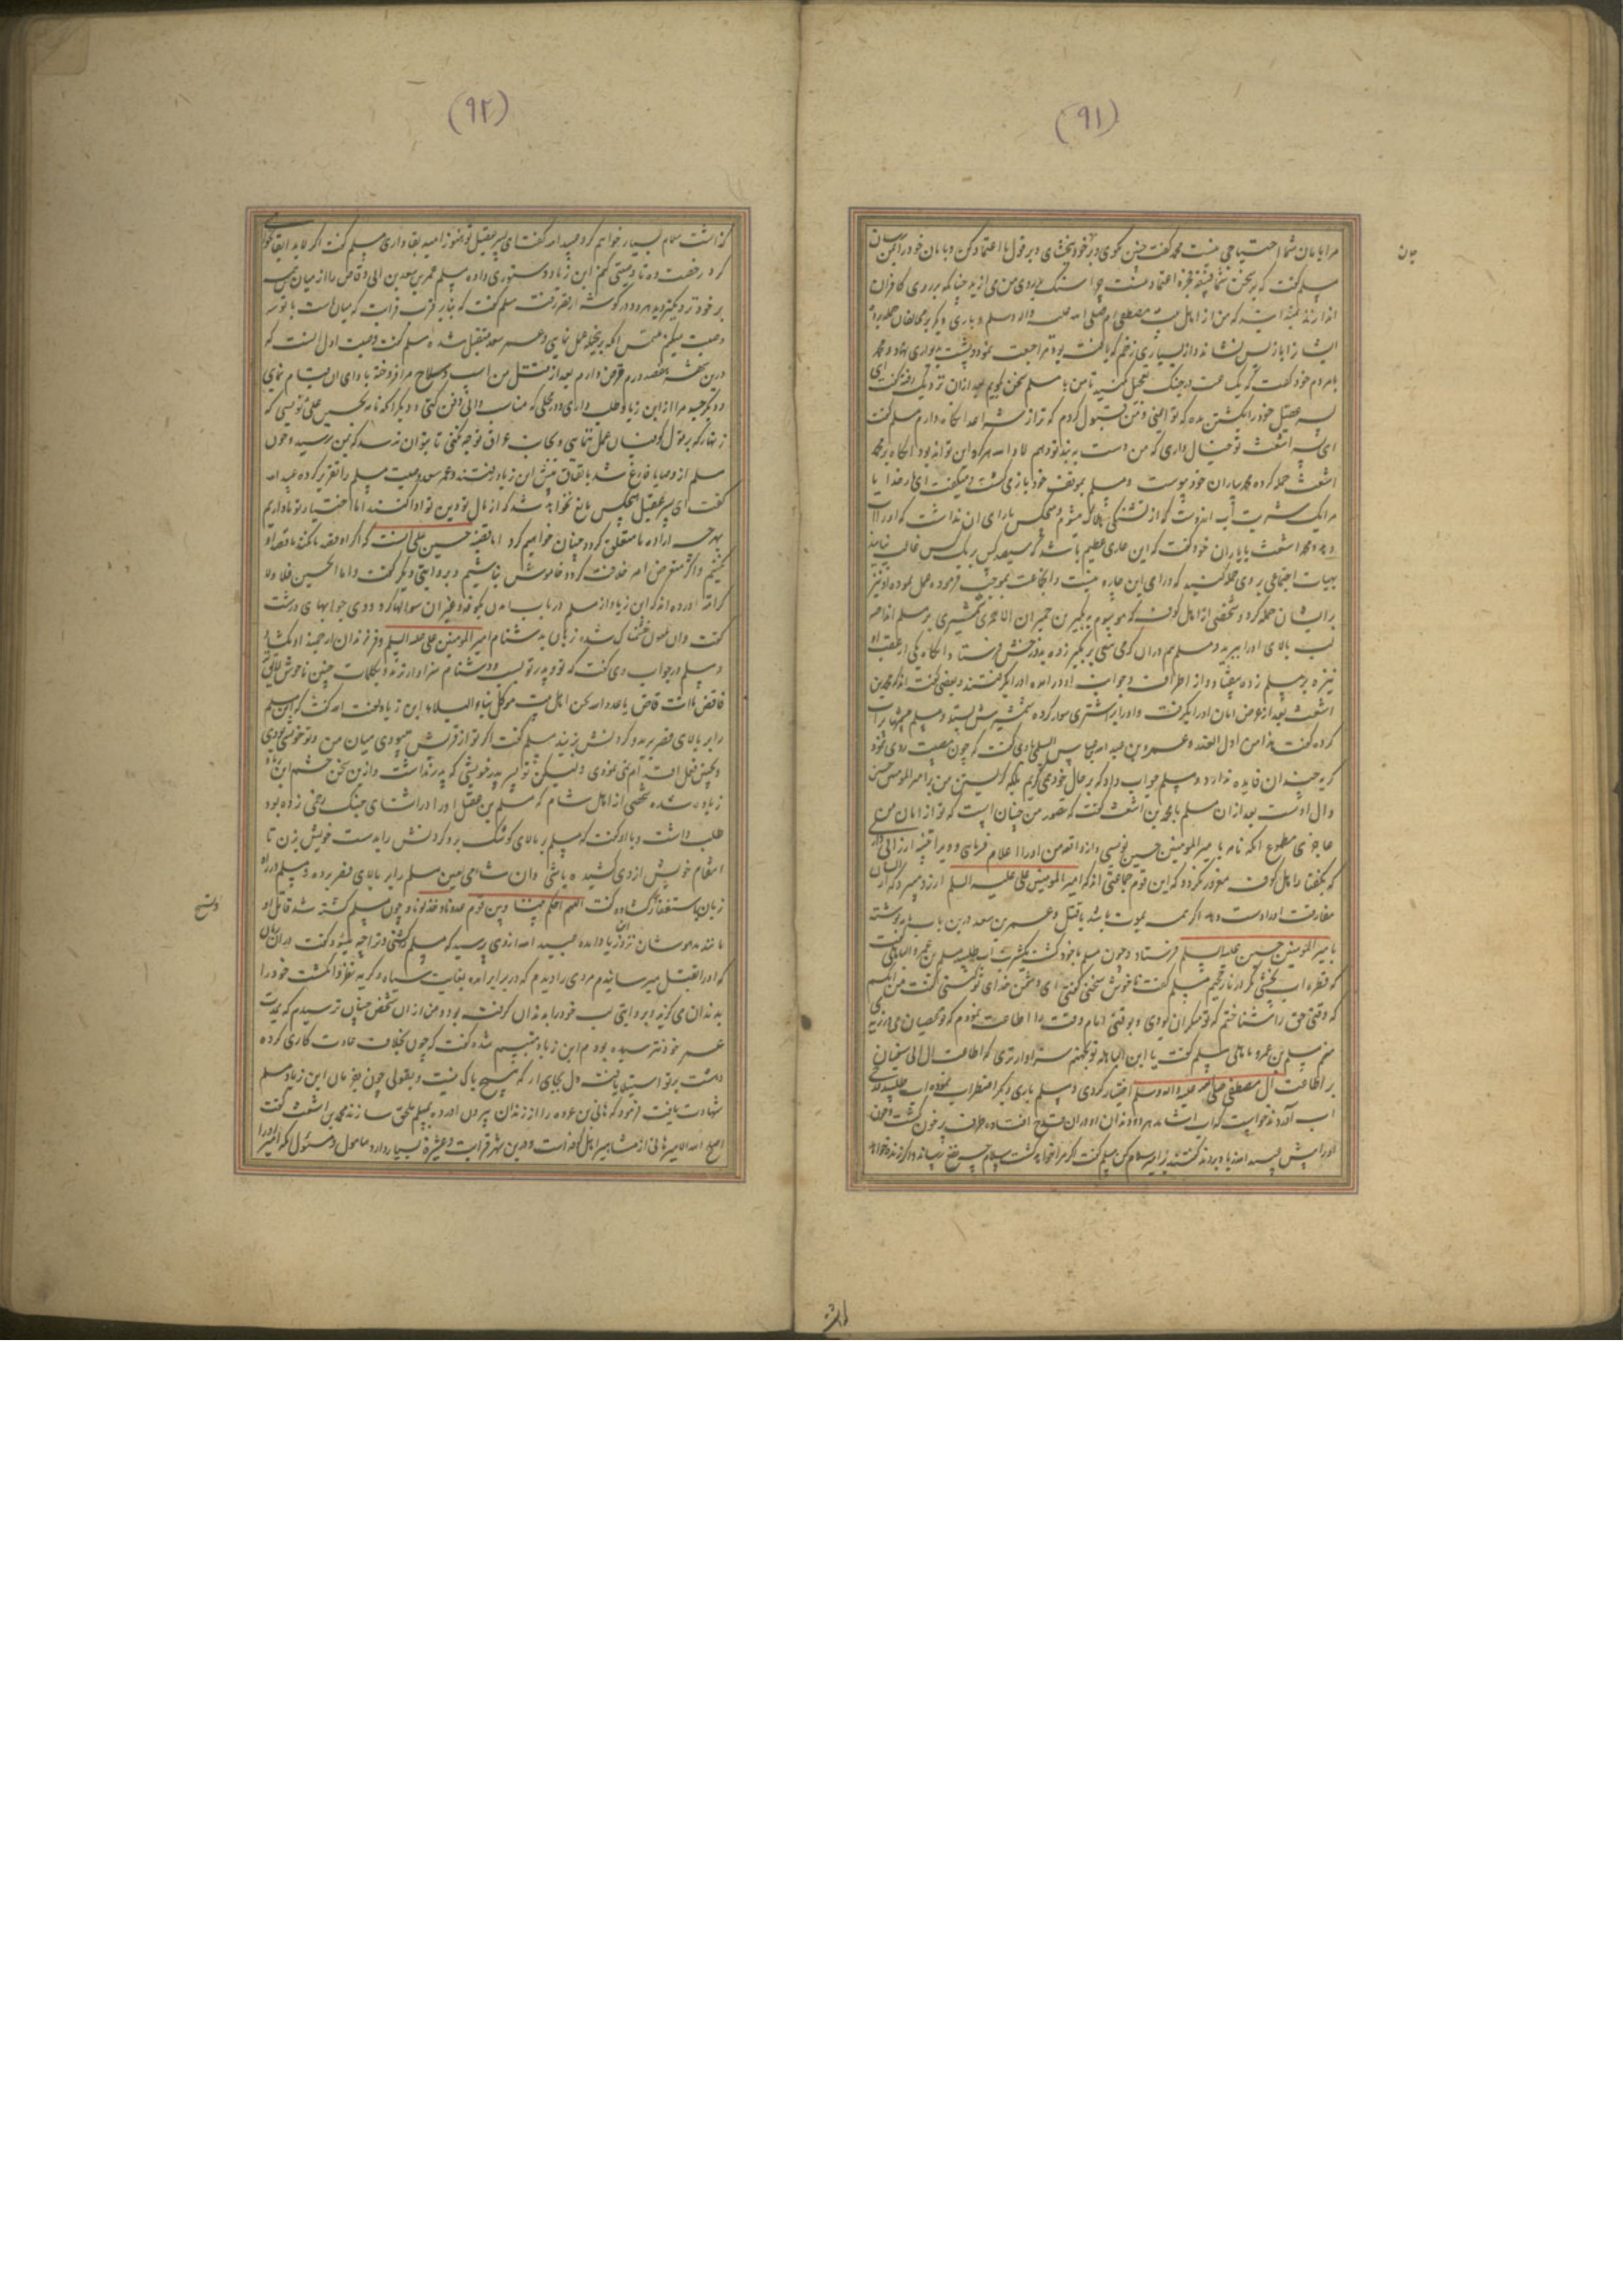 (۹۱)
مرا بامان شما احتیاجی نیست محمد گفت چنین مگوی و بر خود ببخشای و بر قول ما اعتماد کن و بامان خود را ایمن
مسلم گفت که بر سخن شما اعتماد نیست چرا سنگ بر روی من می اندازید چنانکه بر روی کافران
اندازند که من از اهل بیت مصطفی ام صلی الله علیه واله وسلم و باری دیگر بر مخالفان حمله برد
ایشانرا باز پس نشاند و از بسیاری زخم که یافته بود مراجعت نمود و پشت بدیواری نهاد و محمد
بمردم خود گفت که یک ساعت در جنگ تعجیل مکنید تا من با مسلم سخن گویم بعد ازان نزدیک رفته گفت ای
پسر عقیل خود را بکشتن مده که تو ایمنی و من قبول کردم که ترا از شر اعدا نگاه دارم مسلم گفت
ای پسر اشعث تو خیال داری که من دست به بند تو دهم لا والله هرگز این نتواند بود آنگاه بر محمد
اشعث حمله کرده محمد بیاران خود پیوست و مسلم بموقف خود باز می گشت و میگفت ای بار خدایا
مرا یک شربت آب آرزوست که از تشنگی هلاک میشوم و هیچکس یارای آن نداشت که او را آب
دهد و محمد اشعث بایاران خود گفت که این عاری عظیم باشد که سیصد کس بر یک کس غالب نیایند
بهیات اجتماعی بر وی حمله کنید که ورای این چاره نیست
بر ایشان حمله کرد و شخصی از اهل کوفه که موسوم به بکیر بن حمران شمشیری بر مسلم انداخته
لب بالای او را ببرید و مسلم هم دران گرمی تیغی بر بکیر زده بدوزخش فرستاد و آنگاه یکی از عقب او
نیزه بر مسلم زده بیفتاد و از اطراف و جوانب او در آمده او را بگرفتند و بعضی گفته اند که محمد بن
اشعث بعد از عرض امان او را بگرفت و او را بر اشتری سوار کرده شمشیرش بستد و مسلم چشمها پر آب
کرده گفت هذا من اول الغدر و عمرو بن عبید الله بن عباس السلمی باوی گفت که چون مصیبت روی نمود
گریه چندان فایده ندارد و مسلم جواب داد که بر حال خود نمی گریم بلکه گریستن من بر امیر المومنین حسین
وال اوست بعد ازان مسلم با محمد بن اشعث گفت که تصور من چنان است که تو از امان من
عاجزی مطموع آنکه نامه بامیر المومنین حسین نویسی و از واقعه من او را اعلام فرمایی و ویرا تنبیه ارزانی داری
که بگفتار اهل کوفه مغرور نگردد که این قوم جماعتی اند که امیر المومنین علی علیه السلم آرزو میبرد که از ایشان
مفارقت او را دست دهد اگر همه بموت باشد یا قتل و عمر بن سعد درین باب نامه نوشته
بامیر المومنین حسین علیه السلم فرستاد و چون مسلم ماخوذ گشت یکشربت آب طلبید مسلم بن عمرو الباهلی گفت
که قطره آب نچشی مگر در نار جحیم مسلم گفت ناخوش سخنی گفتی ای دشمن خدای تو کیستی گفت من آنکسم
که وقتی حق را شناختم که تو منکر آن بودی و بوقتی امام وقت را اطاعت نمودم که تو عصیان می ورزیدی
منم مسلم بن عمرو باهلی مسلم گفت یا ابن الباهله تو بجهنم سزاوارتری که اطاعت ال ابی سفیان
بر اطاعت آل مصطفی صلی الله علیه واله وسلم اختیار کردی و مسلم باری دیگر اضطراب نموده آب طلبید قدحی
آب آورده خواست که آب آشامد هر دو دندان او در آن قدح افتاده ظرف پر خون گشت و چون
او را پیش عبید الله زیاد بردند گفتند بر امیر سلام کن مسلم گفت اگر مرا خواهد کشت سلام چه نفع رساند و اگر زنده خواهد
(۹۲)
گذاشت سلام بسیار خواهم کرد عبید الله گفت ای پسر عقیل تو هنوز امید بقا داری مسلم گفت اگر لابد
کرد رخصت ده تا وصیتی کنم ابن زیاد دستوری داده مسلم عمر بن سعد بن ابی وقاص را از میان همه
بر خود نزدیکتر دیده هر دو در گوشه از قصر رفته مسلم گفت که بنابر قرب قرابت که میان ماست با تو سه
وصیت میکنم ملتمس آنکه بر جمله عمل نمایی و عمر سعد متقبل شده مسلم گفت وصیت اول آنست که
درین شهر هفتصد درم قرض دارم بعد از قتل من اسب و سلاح مرا فروخته بادای آن قیام نمای
و دیگر جثه مرا از ابن زیاد طلب داری و در محلی که مناسب دانی دفن کنی و دیگر آنکه نامه بحسین علی نویسی که
زنهار که بر قول کوفیان عمل ننمایی و بجانب عراق توجه نکنی تا بتو آن نرسد که بمن رسید و چون
مسلم از وصایا فارغ شد باتفاق پیش ابن زیاد رفتند و عمر سعد وصیت مسلم را تقریر کرده عبید الله
گفت ای پسر عقیل هیچکس مانع نخواهد شد که از مال تو دین تو ادا کنند اما جثه
بهر چه اراده ما متعلق گردد چنان خواهیم کرد اما قضیه حسین علی آنست که اگر او قصد ما نکند ما قصد او
نکنیم و اگر متعرض امر خلافت گردد خاموش نباشیم و بروایتی دیگر گفت و اما الحسین فلا ولا
کرامة آورده اند که ابن زیاد از مسلم در باب آمدن بکوفه و غیر آن سوالها کرد و وی جوابهای درشت
گفت وان ملعون خشمناک شده زبان بدشنام امیر المومنین علی علیه السلم و فرزندان ارجمند او بگشاد
و مسلم در جواب وی گفت که تو و پدر تو بسب و دشنام سزاوارترند و بکلمات چنین ناخوش لایقتر
فاقض ما انت قاض یا عدو الله نحن اهل بیت موکل بنا و البلاء ابن زیاد لعنه الله گفت که این مسلم
را بر بالای قصر برید و گردنش بزنید مسلم گفت اگر تو از قریش میبودی میان من و تو خویشی بودی
و بچنین فعل اقدام نمی نمودی ولیکن تو پسر پدر خویشی که پدر نداشت و ازین سخن خشم ابن
زیاد زیاده شده شخصی از اهل شام که مسلم بن عقیل او را در اثنای جنگ زخمی زده بود
طلب داشت و با او گفت که مسلم بر بالای کوشک برد و گردنش را بدست خویش بزن تا
انتقام خویش از وی کشیده باشی وان شامی لعین مسلم را بر بالای قصر برده و مسلم
زبان باستغفار گشاده گفت اللهم احکم بیننا و بین قوم و چون مسلم کشته شد قاتل او
مانند مدهوشان نزد ابن زیاد آمده عبید الله از وی پرسید که مسلم را کشتی و ترا چه میشود گفت
که او را بقتل میرسانیدم مردی را دیدم که در برابر آمده بغایت سیاه و کریه منظر و انگشت خود را
بدندان می گزید و بروایتی لب خود را بدندان گرفته بود و من از آن شخص چنان ترسیدم که بمدت
عمر خود نترسیده بودم ابن زیاد متبسم شده گفت که چون بخلاف عادت کاری کرده
دهشت بر تو استیلا یافت دل بجای آر که هیچ باک نیست و بقولی چون بفرمان ابن زیاد مسلم
شهادت یافت فرمود که هانی بن عروه را از زندان بیرون آورده بمسلم ملحق سازند محمد بن اشعث گفت
اصلح الله الامیر هانی از مشاهیر اهل کوفه است و درین شهر قرابت و عشیره بسیار دارد مامول و مسئول آنکه